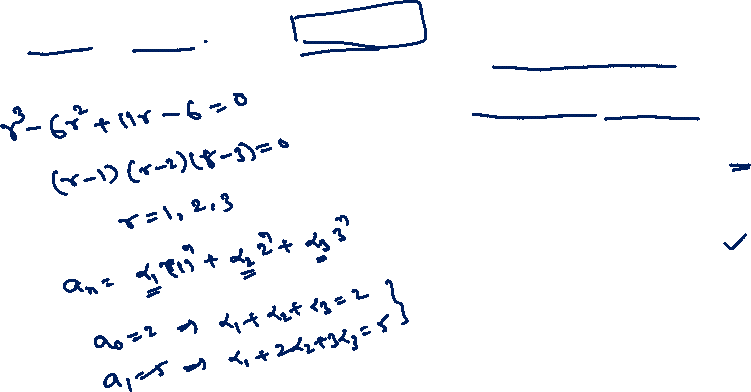 r³ - 6r² + 11r - 6 = 0
(r-1) (r-2) (r-3) = 0
r = 1, 2, 3
aₙ = α₁ (1)ⁿ + α₂ 2ⁿ + α₃ 3ⁿ
a₀ = 2 ⇒ α₁ + α₂ + α₃ = 2 }
a₁ = 5 ⇒ α₁ + 2α₂ + 3α₃ = 5